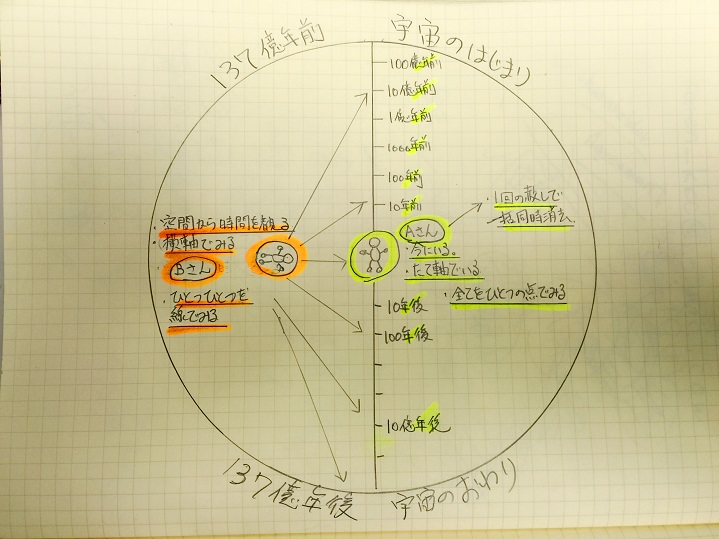 137億年前
宇宙のはじまり
100億年前
10億年前
1億年前
1000年前
100年前
10年前
・空間から時間を観る
・横軸でみる
Bさん
・ひとつひとつを
線でみる
Aさん
・今にいる。
・たて軸でいる
・全てをひとつの点でみる
・1回の赦しで
一括同時消去
10年後
100年後
10億年後
137億年後
宇宙のおわり